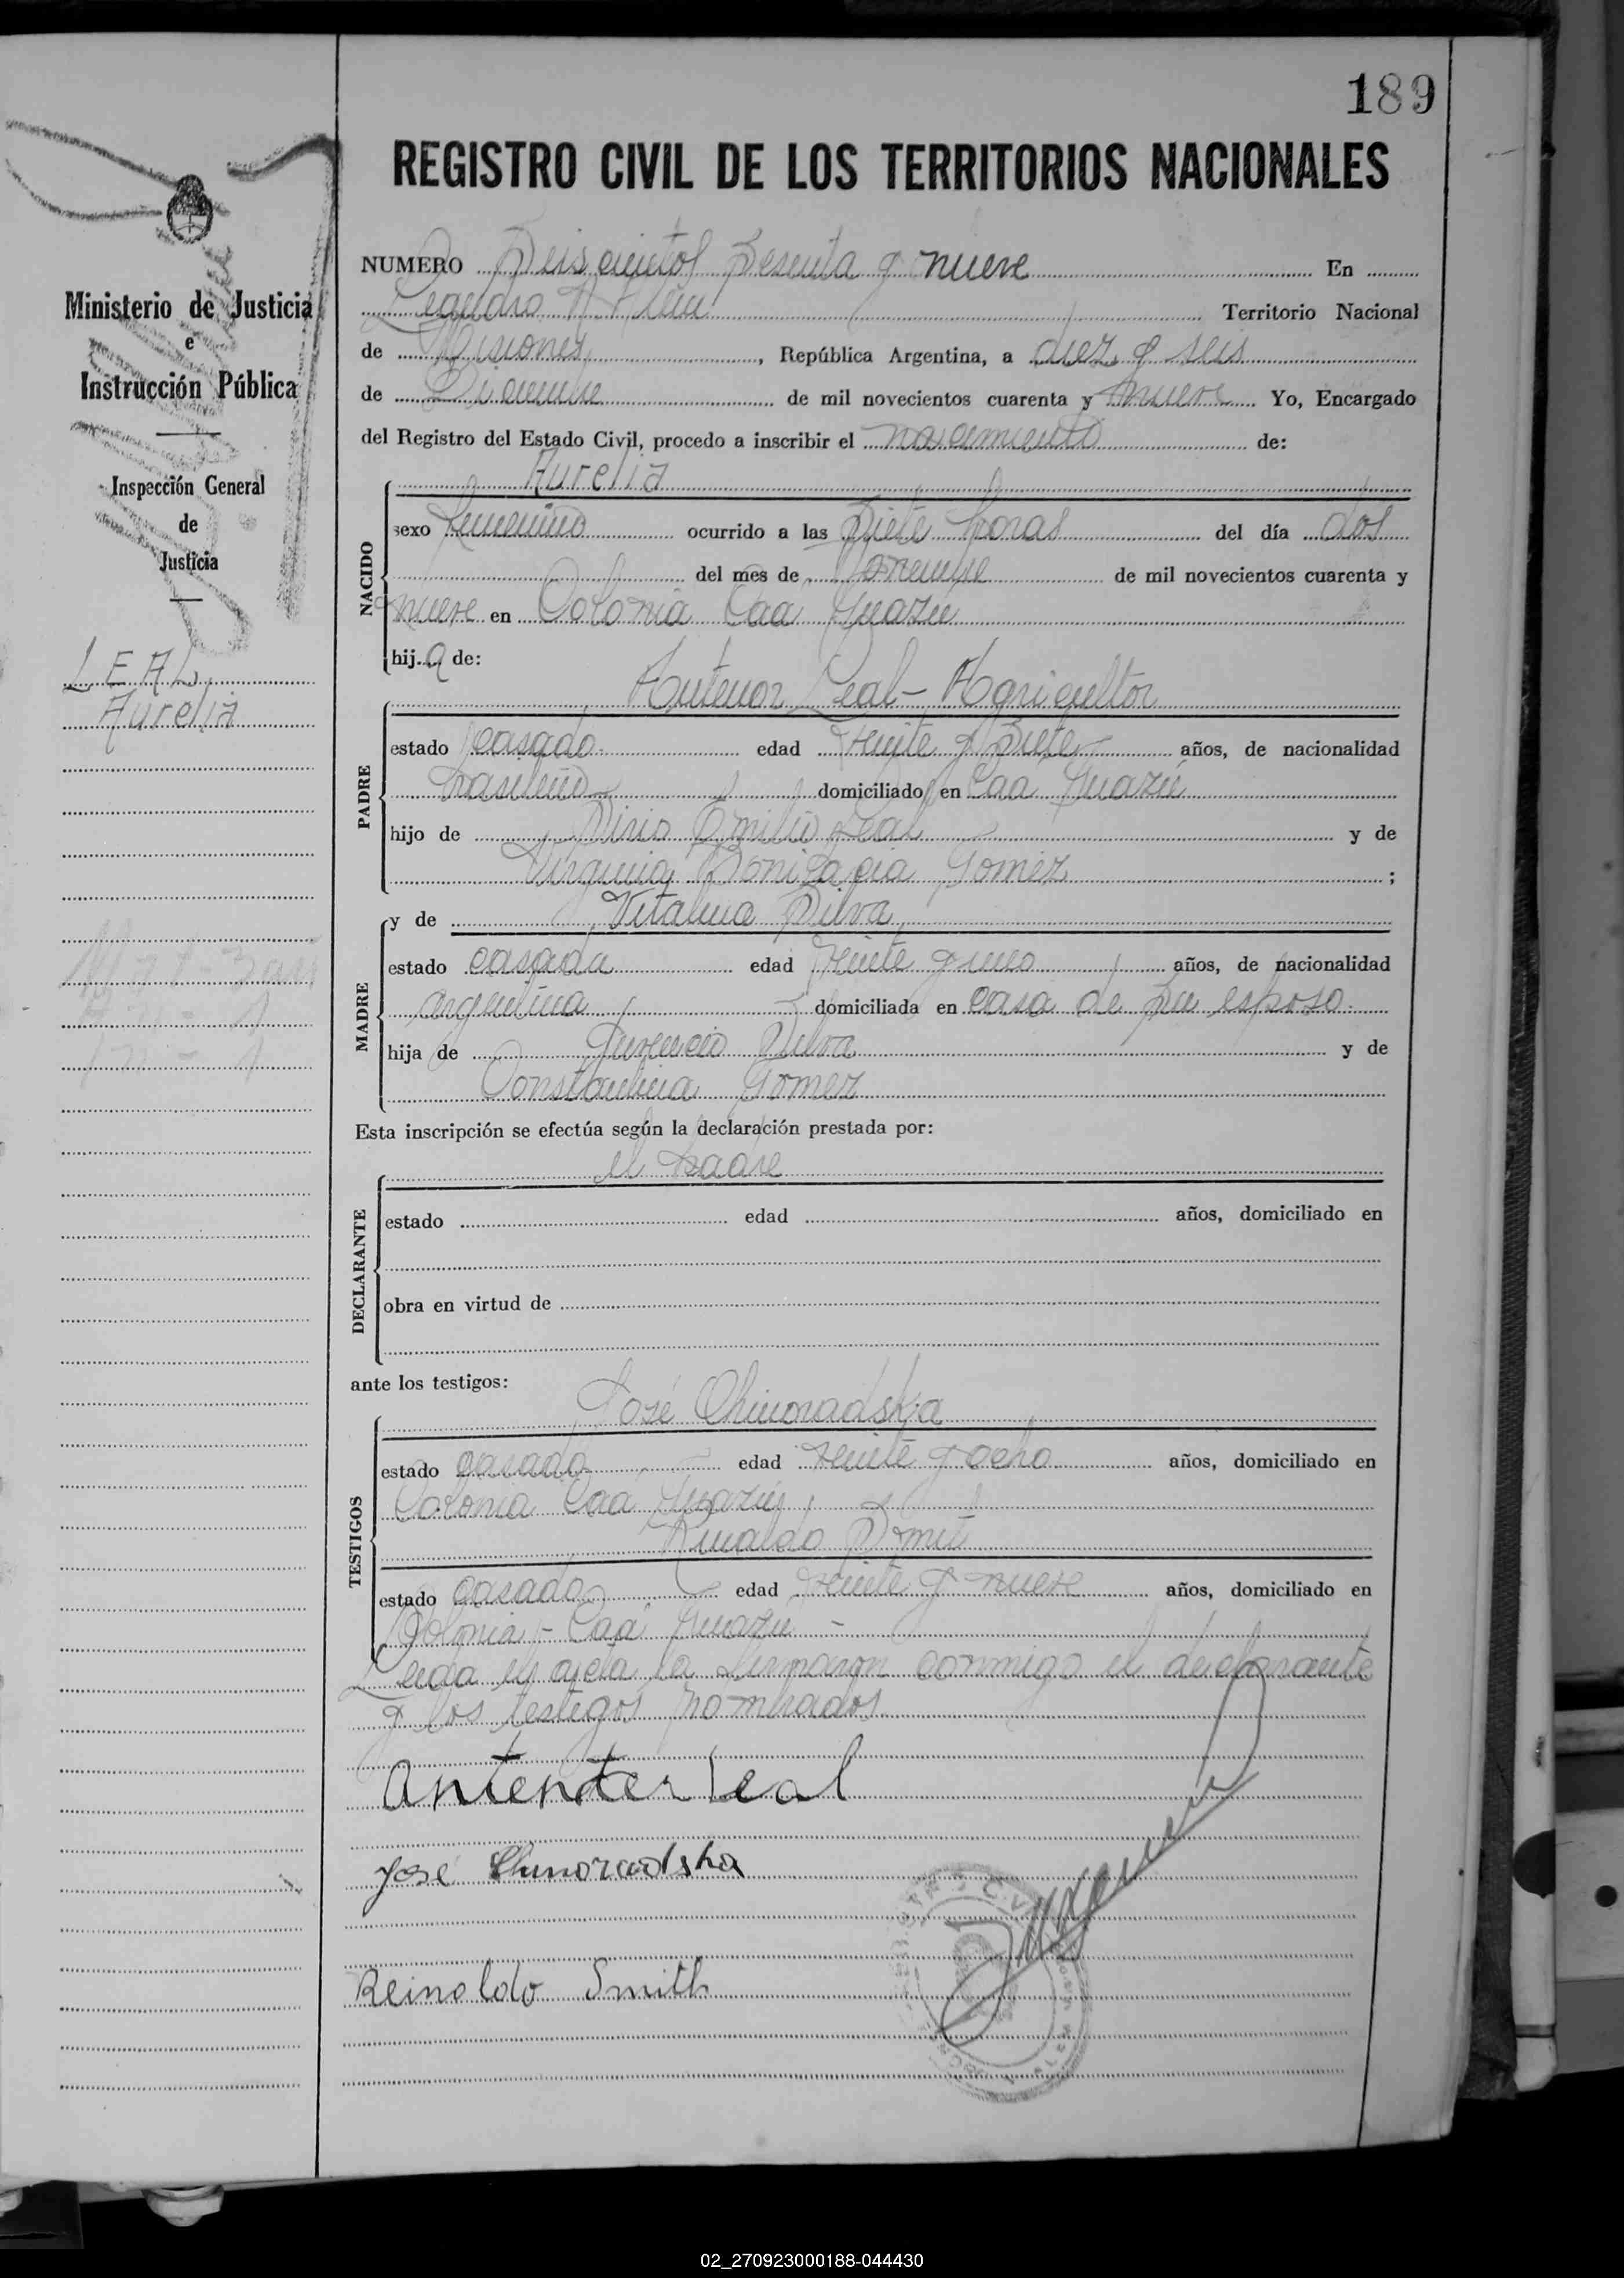 189
REGISTRO CIVIL DE LOS TERRITORIOS NACIONALES
NUMERO Seiscientos Sesenta y nueve En
Leandro N Alem Territorio Nacional
de Misiones, República Argentina, a diez y seis
de Diciembre de mil novecientos cuarenta y nueve Yo, Encargado
del Registro del Estado Civil, procedo a inscribir el nacimiento de:
Aurelia
NACIDO
sexo femenino ocurrido a las Siete horas del día dos
del mes de de mil novecientos cuarenta y
nueve en Colonia Caa Guazu
hija de:
Antenor Leal - Agricultor
PADRE
estado casado edad veinte y Siete años, de nacionalidad
brasileño domiciliado en Caá Guazú
hijo de Emilio Leal y de
Virginia Bonifacia Gomez ;
MADRE
y de Vitalina Silva
estado casada edad veinte y uno años, de nacionalidad
argentina domiciliada en casa de su esposo.
hija de Juvencio Silva y de
Constantina Gomez
Esta inscripción se efectúa según la declaración prestada por:
el Padre
DECLARANTE
estado edad años, domiciliado en
obra en virtud de
ante los testigos:
José Chimoradska
TESTIGOS
estado casado edad veinte y ocho años, domiciliado en
Colonia Caá Guazú
Rinaldo Smit
estado casado edad veinte y nueve años, domiciliado en
Colonia - Caá Guazu -
Leida el acta la firmaron conmigo el declarante
y los testigos nombrados.
Antenor Leal
José Chimoradska
Reinoldo Smith
Ministerio de Justicia
e
Instrucción Pública
Inspección General
de
Justicia
LEAL,
Aurelia
02_270923000188-044430